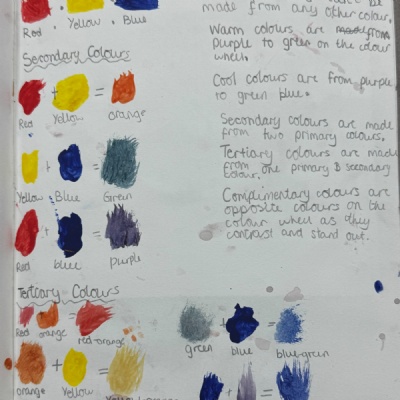 Red Yellow Blue
made from any other colour.
Warm colours are from
purple to green on the colour
wheel.
Cool colours are from purple
to green blue.
Secondary colours are made
from two primary colours.
Tertiary colours are made
from one primary & secondary
colour.
Complimentary colours are
opposite colours on the
colour wheel as they
contrast and stand out.
Secondary Colours
+ =
Red Yellow orange
+ =
Yellow Blue Green
+ =
Red blue purple
Tertiary Colours
+ =
Red orange red-orange
+ =
green blue blue-green
+ =
orange Yellow
+ =